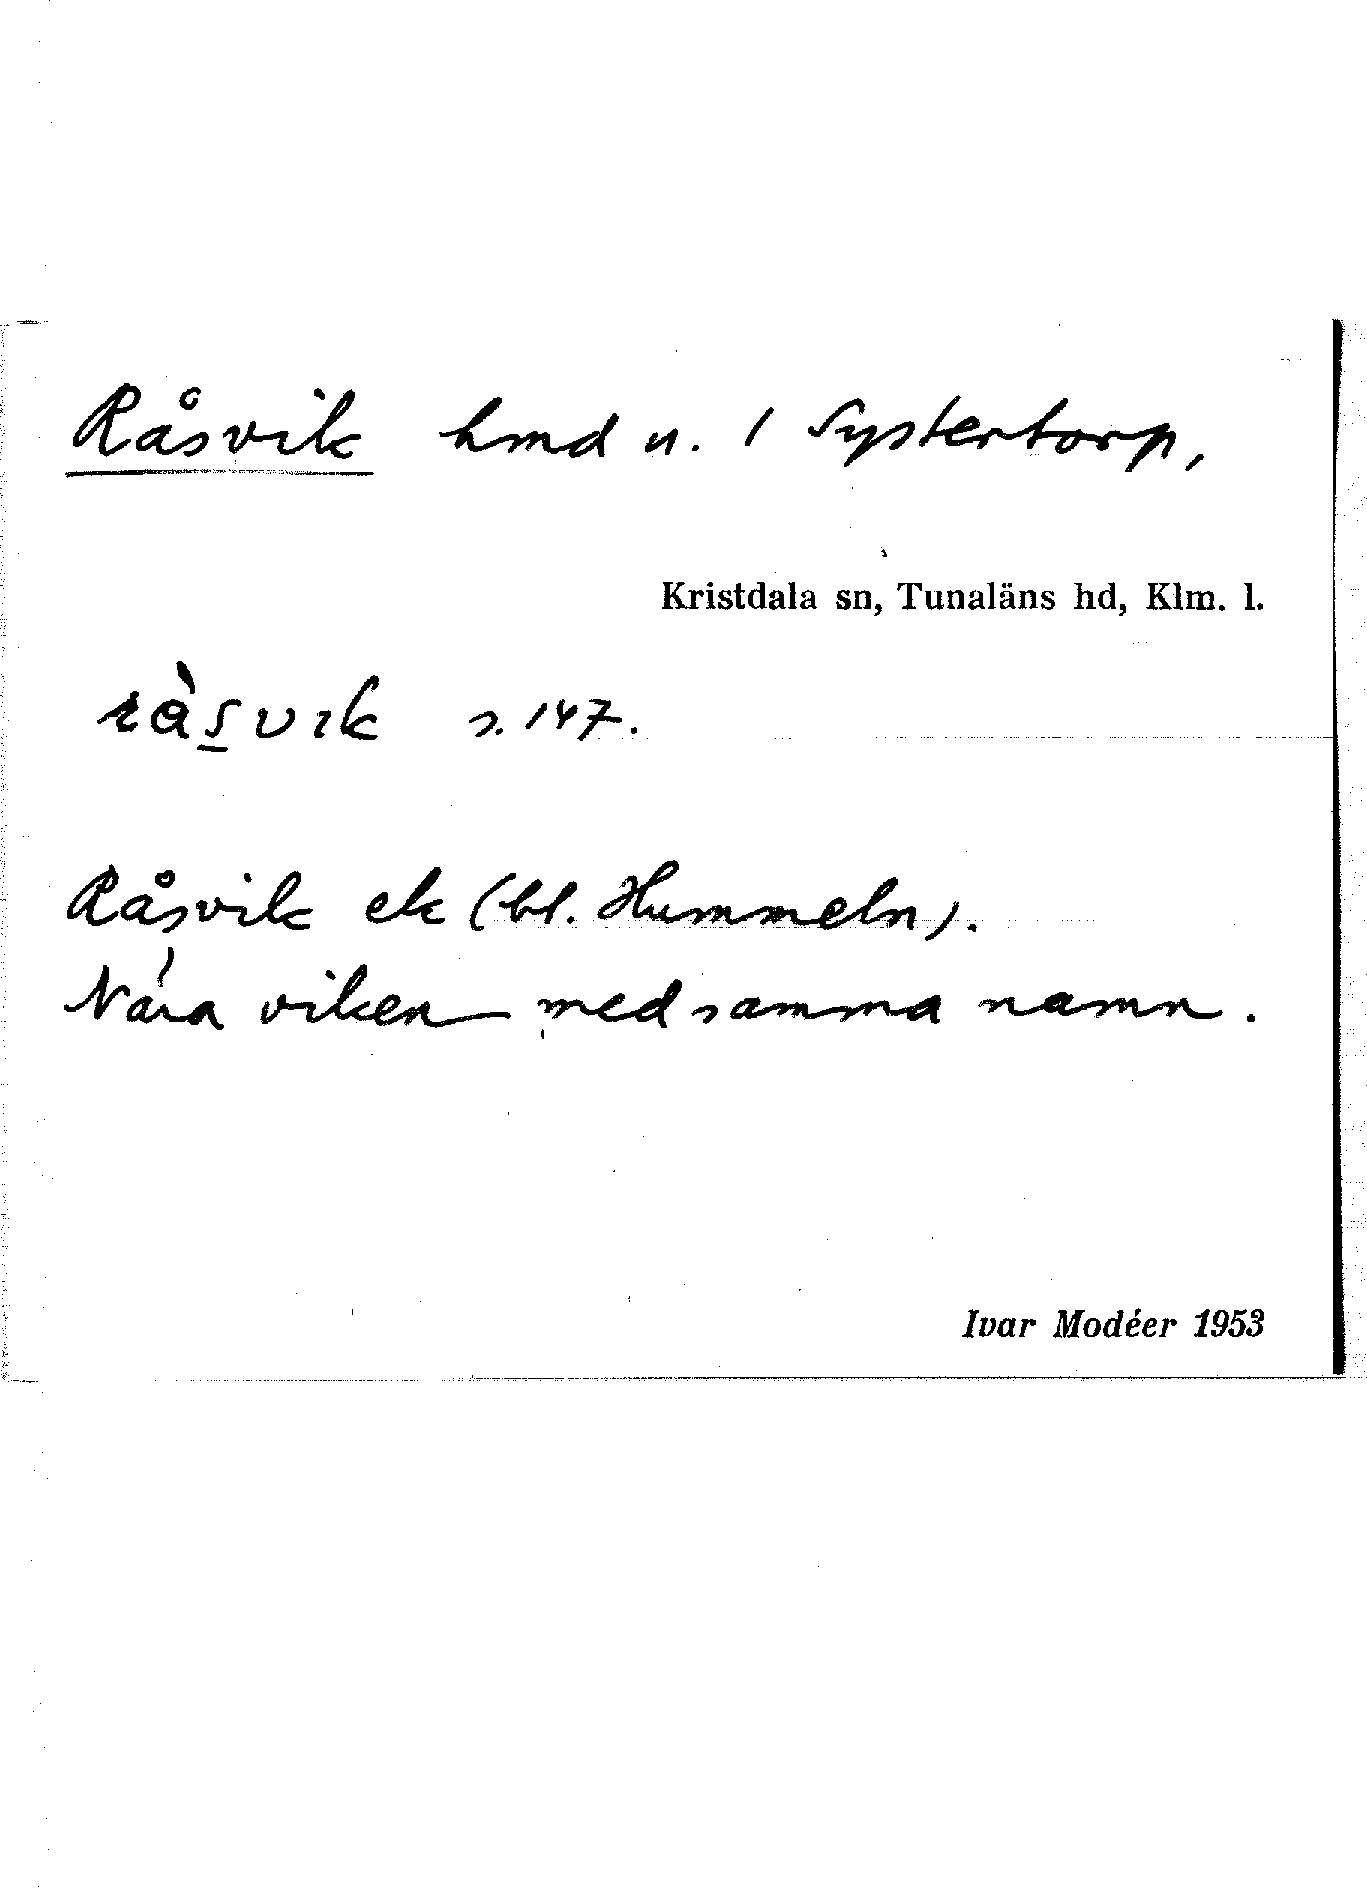 Råsvik hmd u. / Systertorp,
Kristdala sn, Tunaläns hd, Klm. l.
ràsvik s. 147.
Råsvik ek (bl. Hummeln).
Nära viken med samma namn.
Ivar Modéer 1953